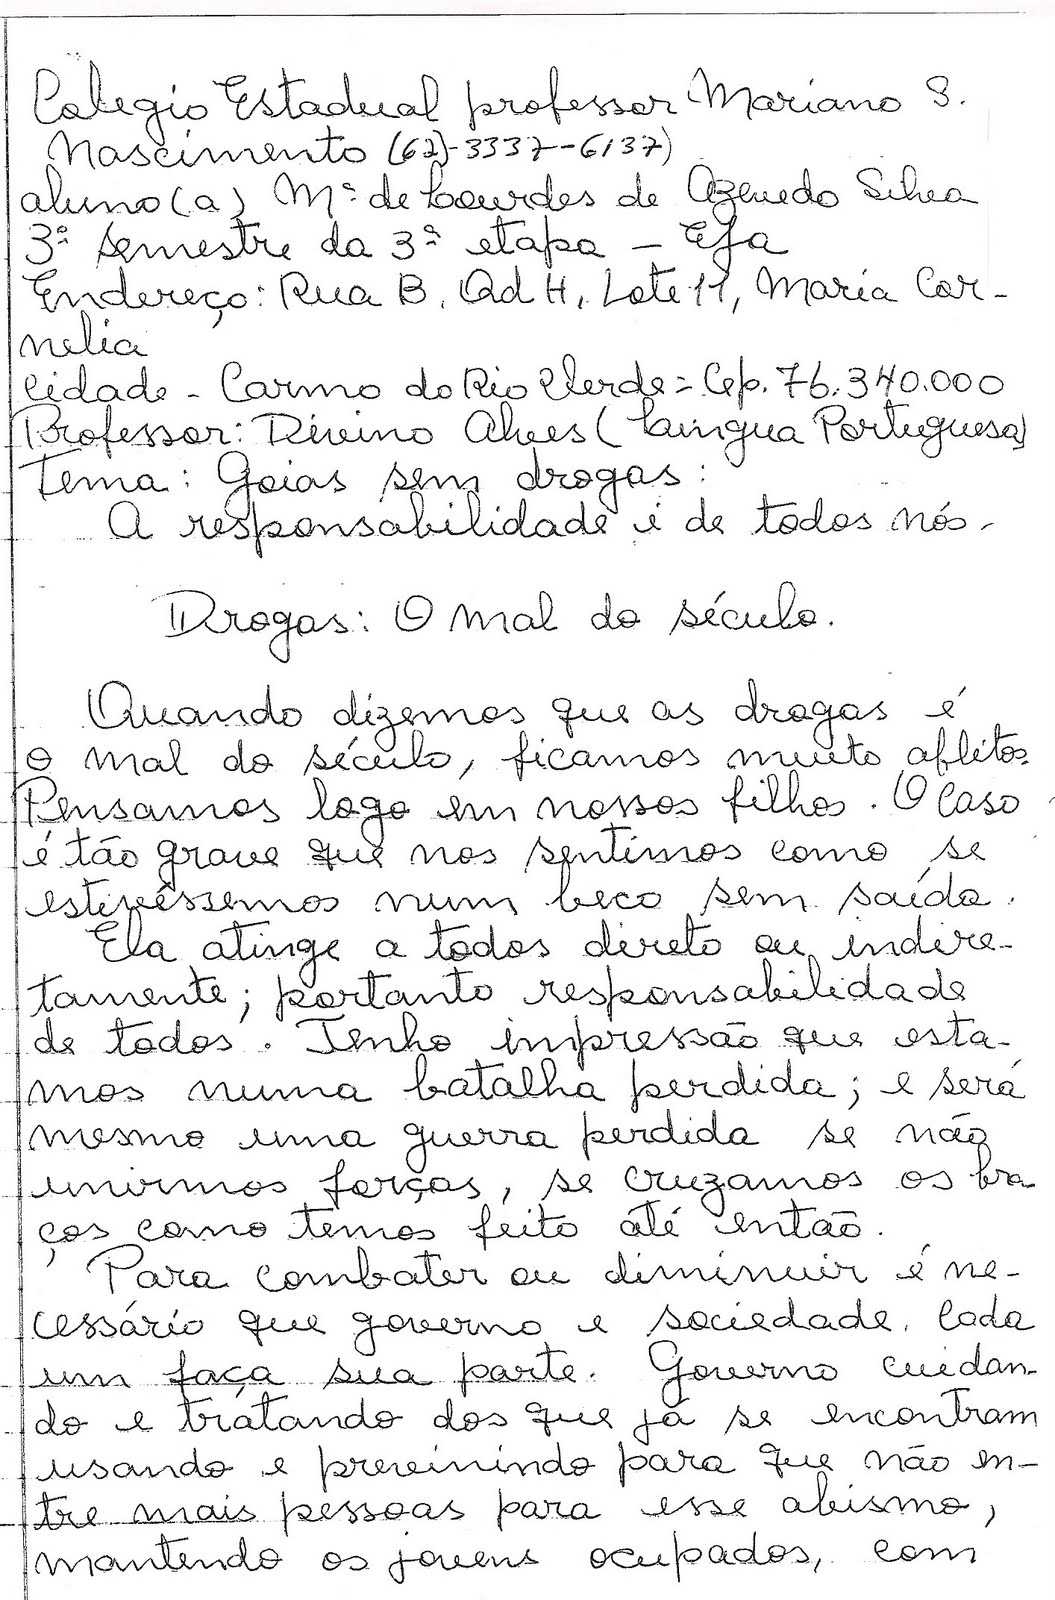 Colegio Estadual professor Mariano S.
Nascimento (62)-3337-6137)
aluno(a) Mª de Lourdes de Azevedo Silva
3º semestre da 3ª etapa - Eja
Endereço: Rua B, Qd H, Lote 11, Maria Cor-
nelia
cidade - Carmo do Rio Verde = Cep. 76.340.000
Professor: Divino Alves (Laingua Portuguesa)
Tema: Goias sem drogas:
A responsabilidade é de todos nós.
Drogas: O mal do século.
Quando dizemos que as drogas é
o mal do século, ficamos muito aflitos.
Pensamos logo em nossos filhos. O caso
é tão grave que nos sentimos como se
estivéssemos num beco sem saída.
Ela atinge a todos direto ou indire-
tamente; portanto responsabilidade
de todos. Tenho impressão que esta-
mos numa batalha perdida; e será
mesmo uma guerra perdida se não
unirmos forças, se cruzamos os bra
ços como temos feito até então.
Para combater ou diminuir é ne-
cessário que governo e sociedade, cada
um faça sua parte. Governo cuidan-
do e tratando dos que já se encontram
usando e prevenindo para que não en-
tre mais pessoas para esse abismo,
mantendo os jovens ocupados, com